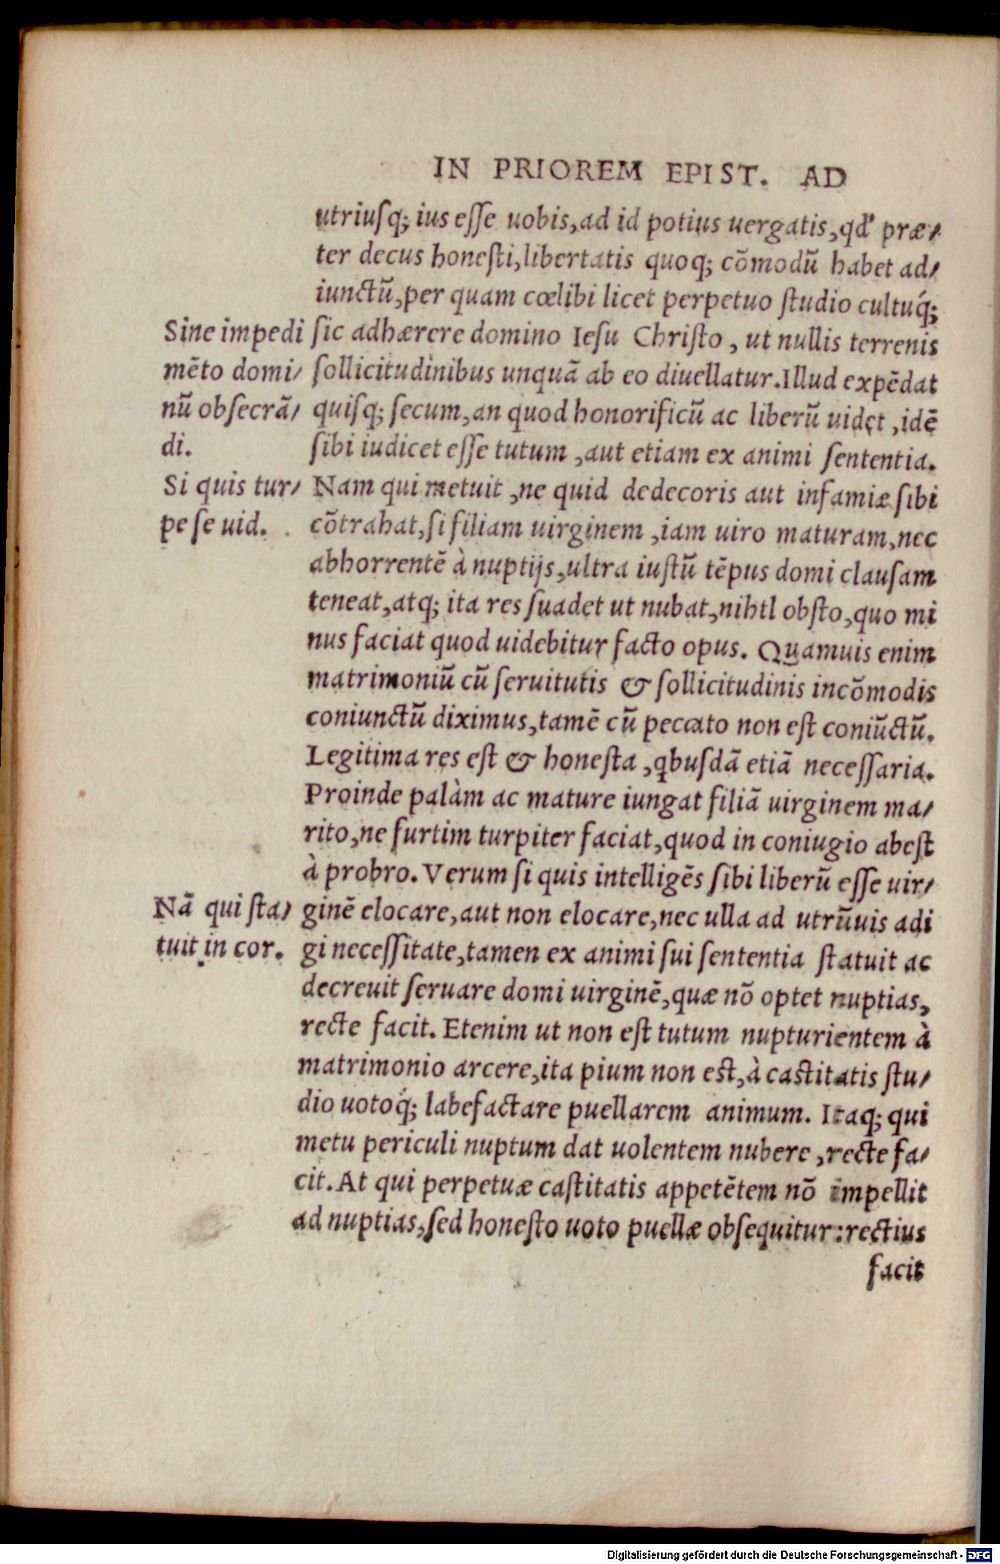 IN PRIOREM EPIST. AD
utriusq; ius esse uobis, ad id potius uergatis, qd' præ/
ter decus honesti, libertatis quoq; cōmodū habet ad/
iunctū, per quam cœlibi licet perpetuo studio cultuq́;
Sine impedi
mēto domi/
nū obsecrā/
di.
sic adhærere domino Iesu Christo, ut nullis terrenis
sollicitudinibus unquā ab eo diuellatur. Illud expēdat
quisq; secum, an quod honorificū ac liberū uidet, idē
sibi iudicet esse tutum, aut etiam ex animi sententia.
Si quis tur/
pe se uid.
Nam qui metuit, ne quid dedecoris aut infamiæ sibi
cōtrahat, si filiam uirginem, iam uiro maturam, nec
abhorrentē à nuptijs, ultra iustū tēpus domi clausam
teneat, atq; ita res suadet ut nubat, nihtl obsto, quo mi
nus faciat quod uidebitur facto opus. Quamuis enim
matrimoniū cū seruitutis & sollicitudinis incōmodis
coniunctū diximus, tamē cū peccato non est coniūctū.
Legitima res est & honesta, qbusdā etiā necessaria.
Proinde palàm ac mature iungat filiā uirginem ma/
rito, ne furtim turpiter faciat, quod in coniugio abest
à probro. Verum si quis intelligēs sibi liberū esse uir/
Nā qui sta/
tuit in cor.
ginē elocare, aut non elocare, nec ulla ad utrūuis adi
gi necessitate, tamen ex animi sui sententia statuit ac
decreuit seruare domi uirginē, quæ nō optet nuptias,
recte facit. Etenim ut non est tutum nupturientem à
matrimonio arcere, ita pium non est, à castitatis stu/
dio uotoq́; labefactare puellarem animum. Itaq; qui
metu periculi nuptum dat uolentem nubere, recte fa/
cit. At qui perpetuæ castitatis appetētem nō impellit
ad nuptias, sed honesto uoto puellæ obsequitur: rectius
facit
Digitalisierung gefördert durch die Deutsche Forschungsgemeinschaft - DFG